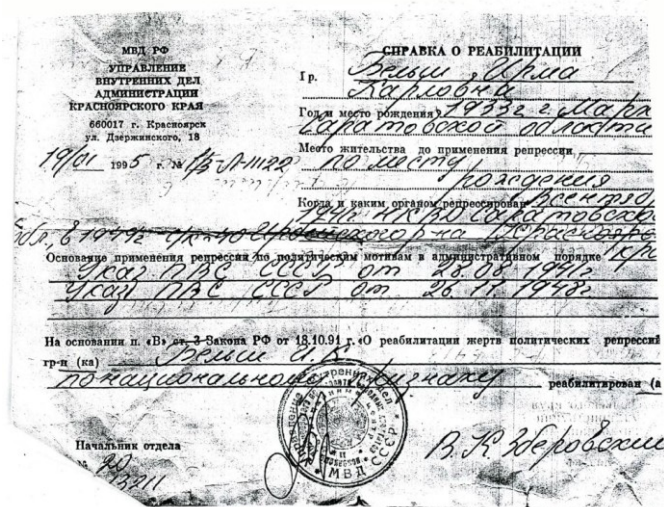 МВД РФ
УПРАВЛЕНИЕ
ВНУТРЕННИХ ДЕЛ
АДМИНИСТРАЦИИ
КРАСНОЯРСКОГО КРАЯ
660017 г. Красноярск
ул. Дзержинского, 18
19/01 1995 г. №
СПРАВКА О РЕАБИЛИТАЦИИ
Гр. Бельш Ирма
Карловна
Год и место рождения 1933 г. г. Маркс
Саратовской области
Место жительства до применения репрессии
по месту
рождения
Когда и каким органом репрессирован В сентябре
1941г. НКВД Саратовской
обл., в 1949г. на
Основание применения репрессии по политическим мотивам в административном порядке
Указ ПВС СССР от 28.08.1941г.
Указ ПВС СССР от 26.11.1948г.
На основании п. «В» ст. 3 Закона РФ от 18.10.91 г. «О реабилитации жертв политических репрессий
гр-н (ка) Бельш И.К.
по национальному признаку реабилитирован (а
Начальник отдела
В.К. Зберовский
МВД СССР